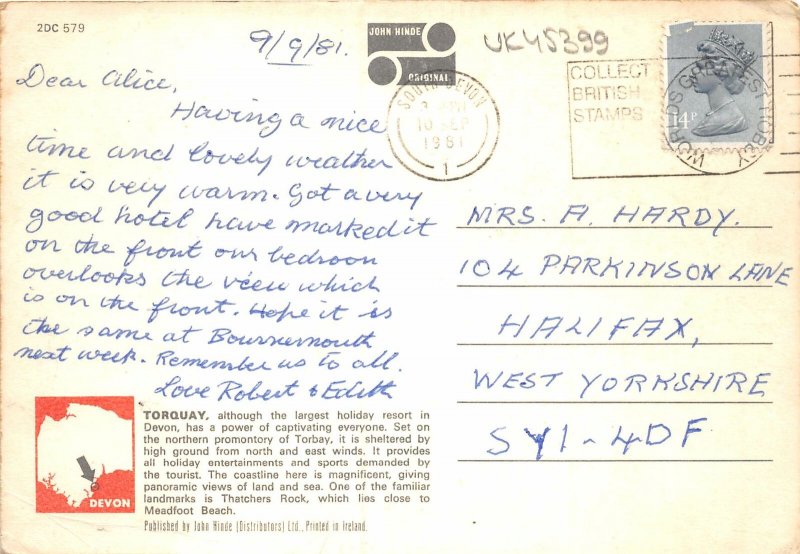 2DC 579
9/9/81.
JOHN HINDE
ORIGINAL
UK45399
Dear Alice,
Having a nice
time and lovely weather
it is very warm. Got a very
good hotel have marked it
on the front our bedroon
overlooks the view which
is on the front. Hope it is
the same at Bournemouth
next week. Remember us to all.
Love Robert & Edith
SOUTH DEVON
10 SEP
1981
1
COLLECT
BRITISH
STAMPS
WORLDS GREATEST HOBBY
14P
MRS. A. HARDY.
104 PARKINSON LANE
HALIFAX,
WEST YORKSHIRE
SY1-4DF
DEVON
TORQUAY, although the largest holiday resort in
Devon, has a power of captivating everyone. Set on
the northern promontory of Torbay, it is sheltered by
high ground from north and east winds. It provides
all holiday entertainments and sports demanded by
the tourist. The coastline here is magnificent, giving
panoramic views of land and sea. One of the familiar
landmarks is Thatchers Rock, which lies close to
Meadfoot Beach.
Published by John Hinde (Distributors) Ltd., Printed in Ireland.